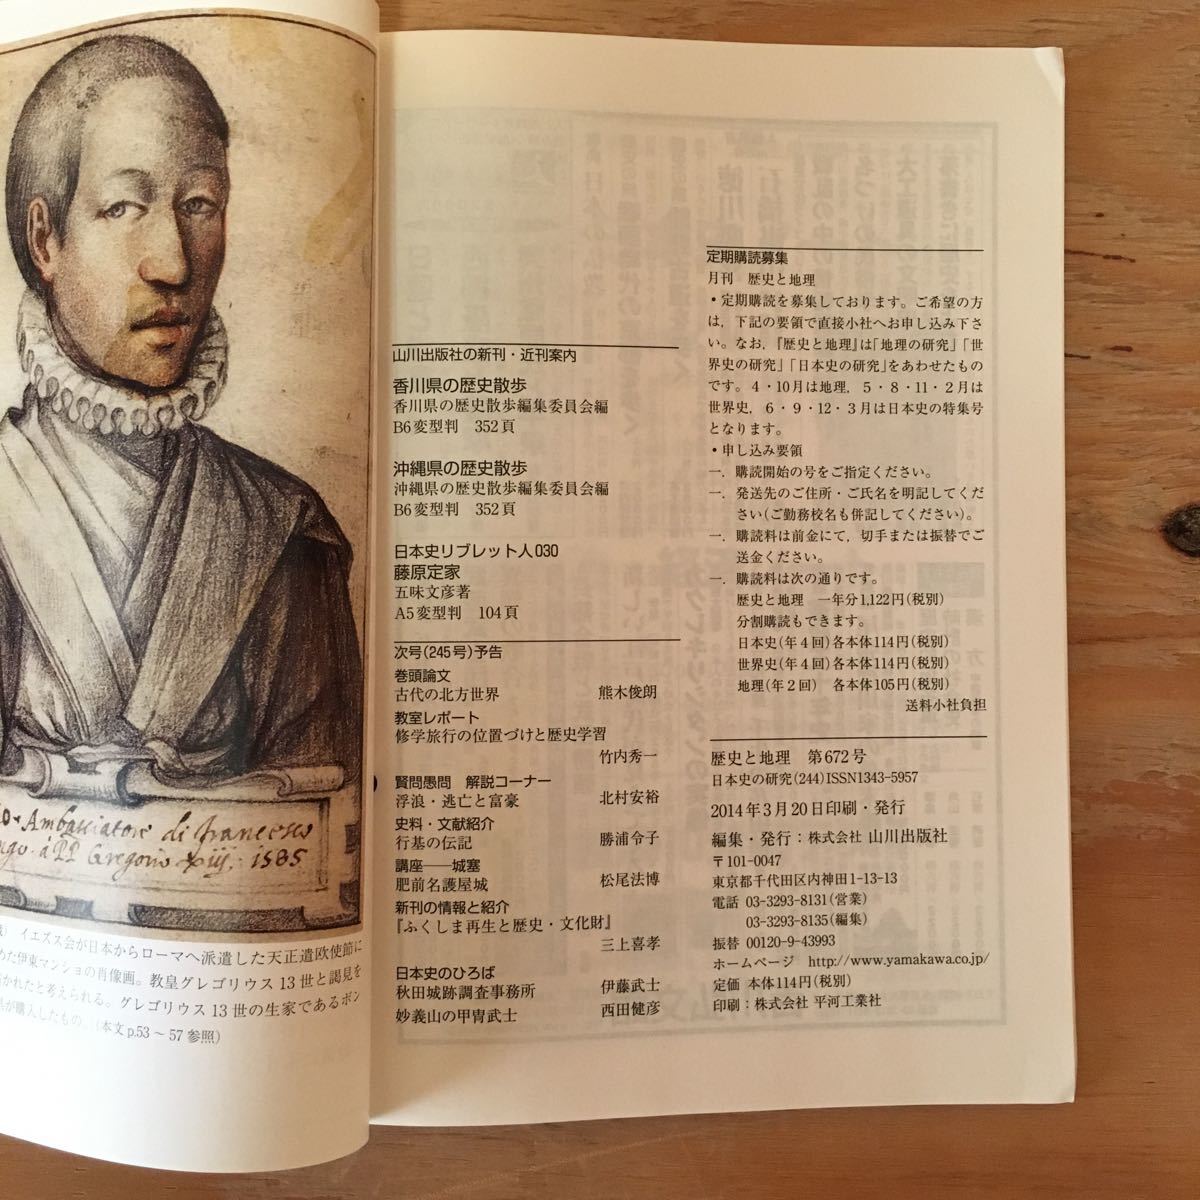 Ambasciatore di francesco
ngo. à PP Gregorio xiij. 1585
イエズス会が日本からローマへ派遣した天正遣欧使節に
めた伊東マンショの肖像画。教皇グレゴリウス13世と謁見を
描かれたと考えられる。グレゴリウス13世の生家であるボン
が購入したもの。(本文p.53〜57参照)
山川出版社の新刊・近刊案内
香川県の歴史散歩
香川県の歴史散歩編集委員会編
B6変型判 352頁
沖縄県の歴史散歩
沖縄県の歴史散歩編集委員会編
B6変型判 352頁
日本史リブレット人030
藤原定家
五味文彦著
A5変型判 104頁
次号(245号)予告
巻頭論文
古代の北方世界 熊木俊朗
教室レポート
修学旅行の位置づけと歴史学習
竹内秀一
賢問愚問 解説コーナー
浮浪・逃亡と富豪 北村安裕
史料・文献紹介
行基の伝記 勝浦令子
講座──城塞
肥前名護屋城 松尾法博
新刊の情報と紹介
『ふくしま再生と歴史・文化財』
三上喜孝
日本史のひろば
秋田城跡調査事務所 伊藤武士
妙義山の甲冑武士 西田健彦
定期購読募集
月刊 歴史と地理
・定期購読を募集しております。ご希望の方
は，下記の要領で直接小社へお申し込み下さ
い。なお，『歴史と地理』は「地理の研究」「世
界史の研究」「日本史の研究」をあわせたもの
です。4・10月は地理，5・8・11・2月は
世界史，6・9・12・3月は日本史の特集号
となります。
・申し込み要領
一．購読開始の号をご指定ください。
一．発送先のご住所・ご氏名を明記してくだ
さい(ご勤務校名も併記してください)。
一．購読料は前金にて，切手または振替でご
送金ください。
一．購読料は次の通りです。
歴史と地理 一年分1,122円(税別)
分割購読もできます。
日本史(年4回)各本体114円(税別)
世界史(年4回)各本体114円(税別)
地理(年2回) 各本体105円(税別)
送料小社負担
歴史と地理 第672号
日本史の研究(244)ISSN1343-5957
2014年3月20日印刷・発行
編集・発行：株式会社 山川出版社
〒101-0047
東京都千代田区内神田1-13-13
電話 03-3293-8131(営業)
03-3293-8135(編集)
振替 00120-9-43993
ホームページ http://www.yamakawa.co.jp/
定価 本体114円(税別)
印刷：株式会社 平河工業社